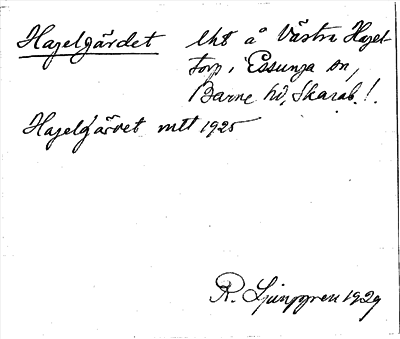 Hajelgärdet lht å Västra Hajel-
torp i Essunga sn,
Barne hd, Skarab. l.
Hajelgärdet mtt 1925
R. Ljunggren 1929